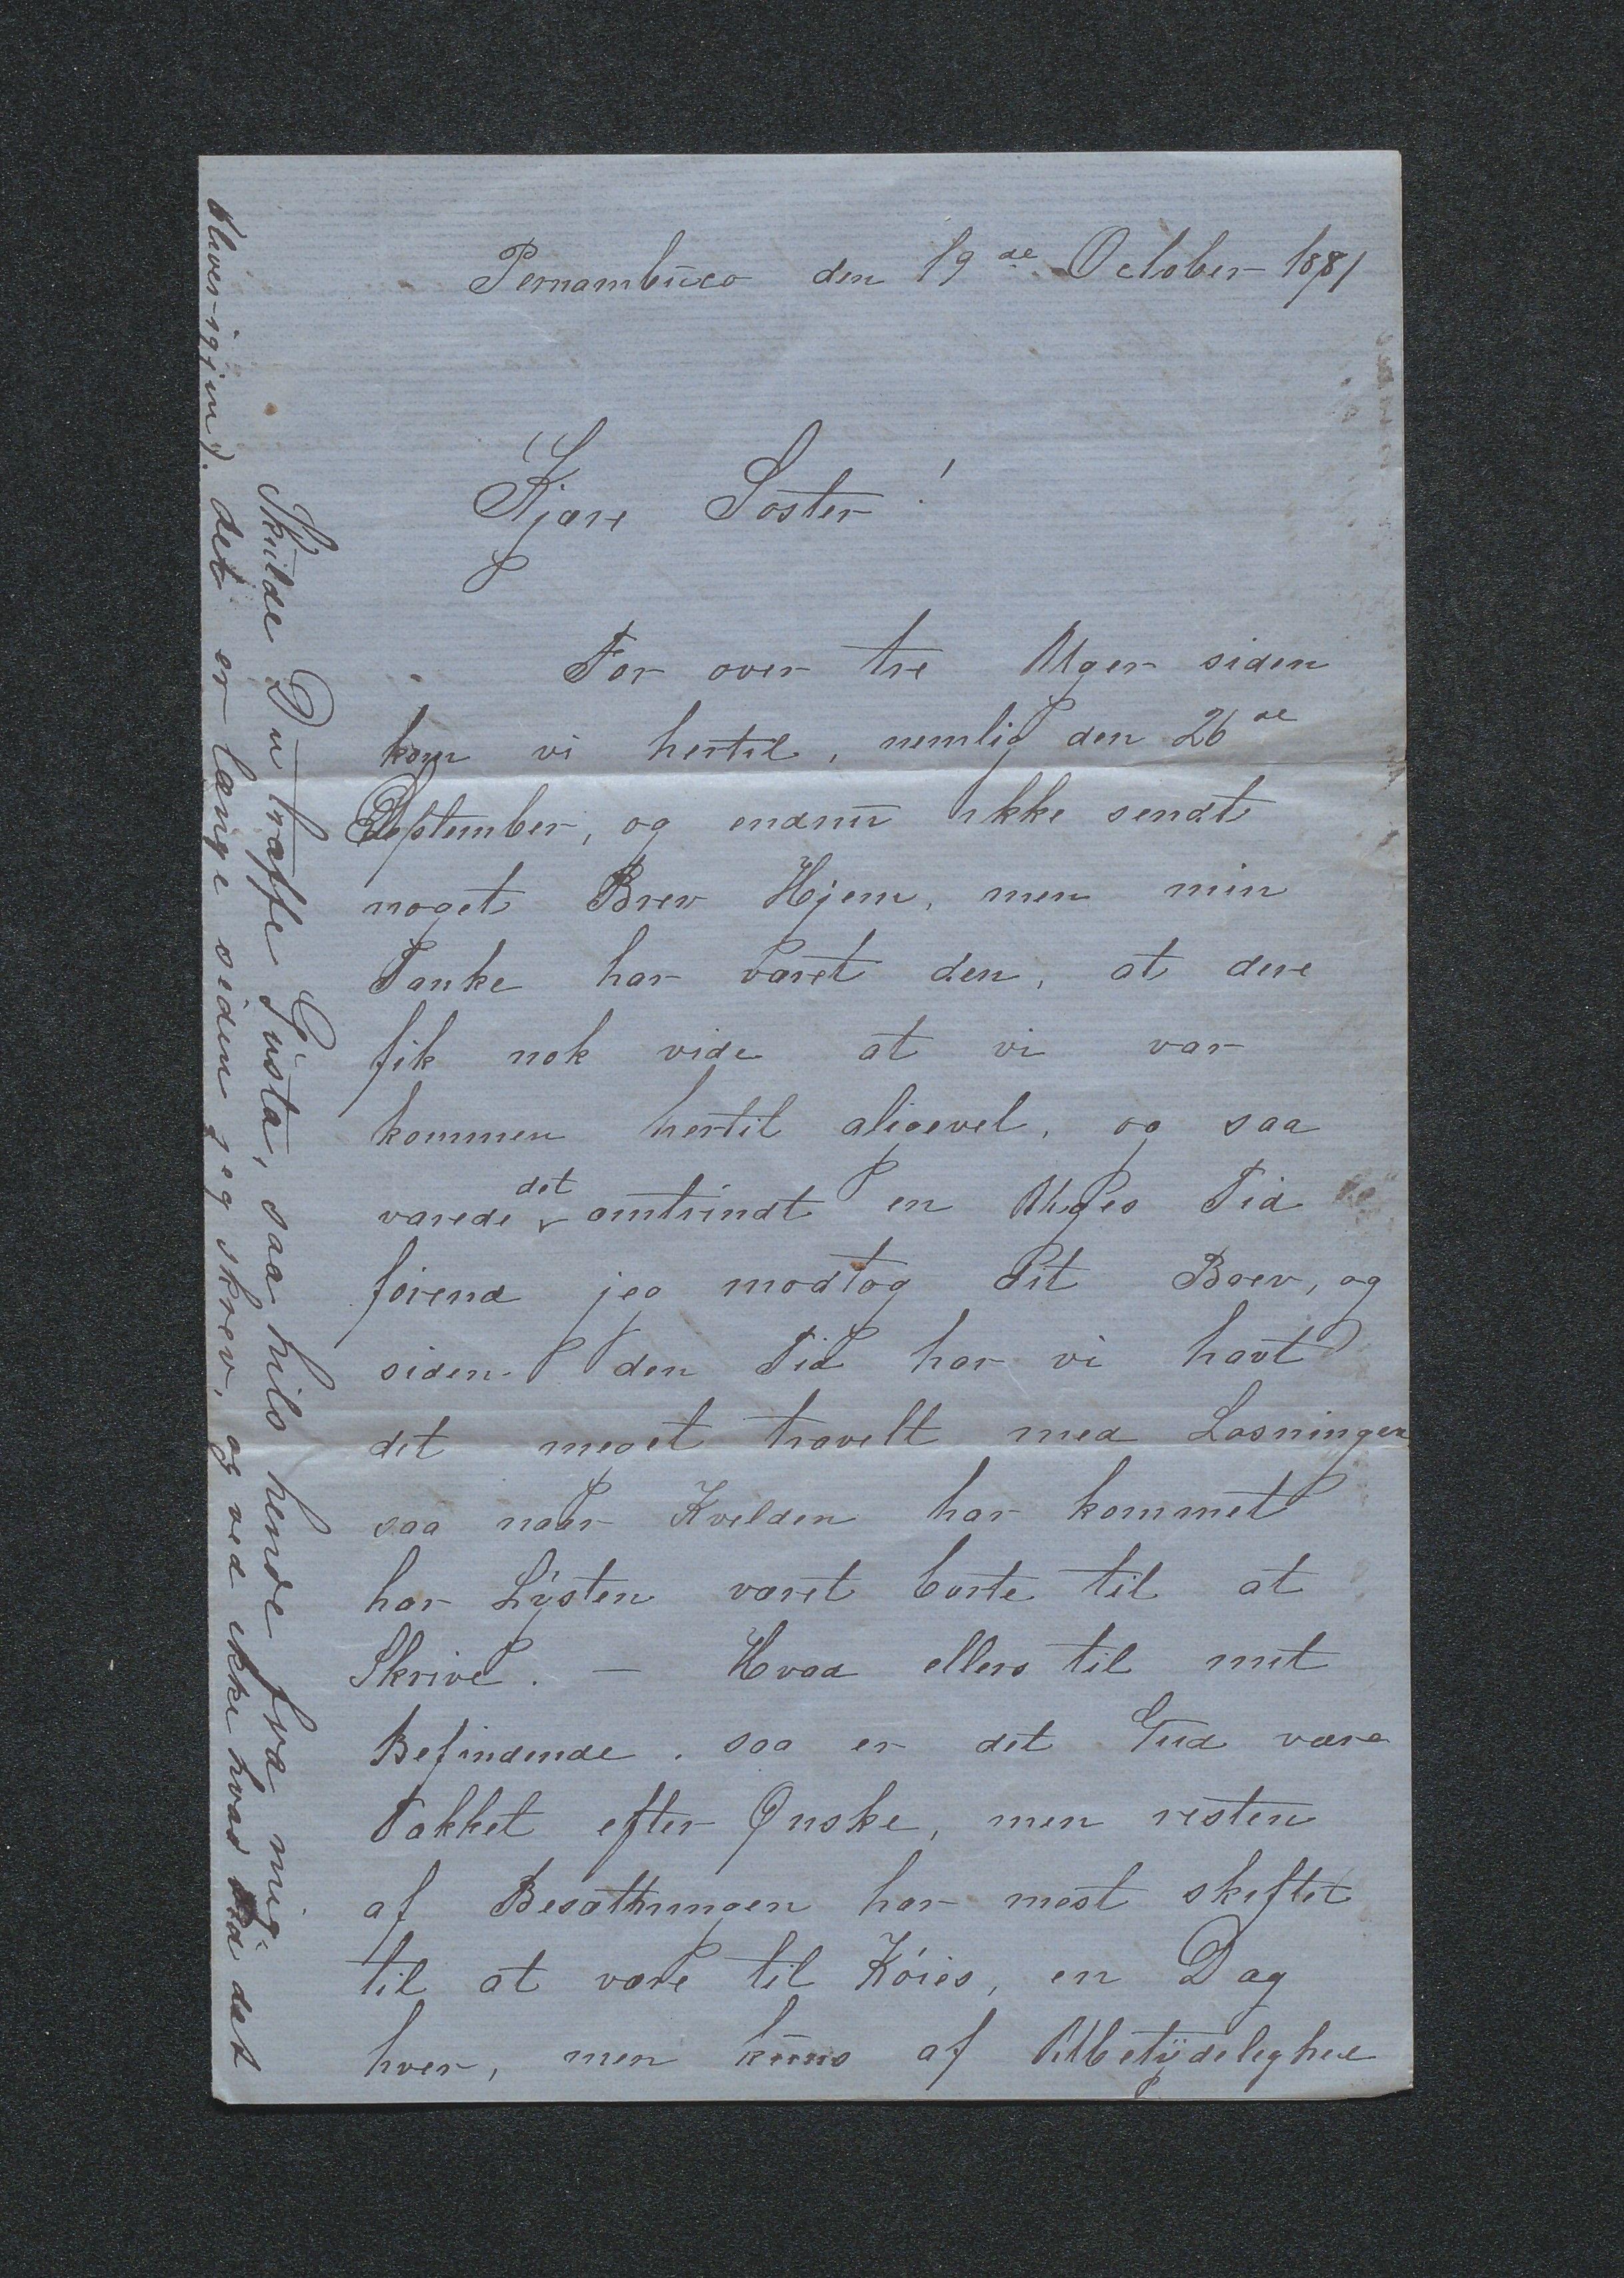 Pernambuco den 19de October 1881
Kjære Søster!
For over tre Uger siden
kom vi hertil, nemlig den 26de
September, og endnu ikke sendt
noget Brev Hjem, men min
Tanke har været den, at dere
fik nok vide at vi var
kommen hertil aligevel, og saa
varede det omtrindt en Uges Tid
førend jeg modtog dit Brev, og
siden den Tid har vi havt
det meget travelt med Losningen
saa naar Kvelden har kommet
har Lysten været borte til at
Skrive. — Hvad ellers til mit
Befindende, saa er det Gud være
Takket efter Ønske, men resten
af Besætningen har mest skiftet
til at være til Køies, en Dag
hver, men kuns af Ubetydelighed
Skulde Du træffe Gusta, saa hils hende fra mig
det er længe siden jeg skrev, og ved ikke hvad det